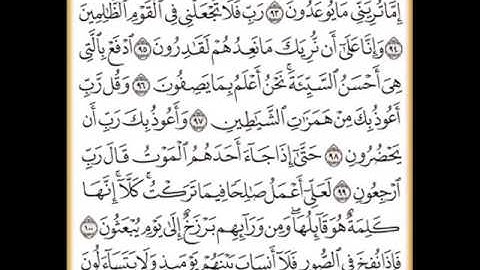 إِمَّا تُرِيَنِّي مَا يُوعَدُونَ ٩٣ رَبِّ فَلَا تَجْعَلْنِي فِي الْقَوْمِ الظَّالِمِينَ
٩٤ وَإِنَّا عَلَىٰ أَن نُّرِيَكَ مَا نَعِدُهُمْ لَقَادِرُونَ ٩٥ ادْفَعْ بِالَّتِي
هِيَ أَحْسَنُ السَّيِّئَةَ ۚ نَحْنُ أَعْلَمُ بِمَا يَصِفُونَ ٩٦ وَقُل رَّبِّ
أَعُوذُ بِكَ مِنْ هَمَزَاتِ الشَّيَاطِينِ ٩٧ وَأَعُوذُ بِكَ رَبِّ أَن
يَحْضُرُونِ ٩٨ حَتَّىٰ إِذَا جَاءَ أَحَدَهُمُ الْمَوْتُ قَالَ رَبِّ
ارْجِعُونِ ٩٩ لَعَلِّي أَعْمَلُ صَالِحًا فِيمَا تَرَكْتُ ۚ كَلَّا ۚ إِنَّهَا
كَلِمَةٌ هُوَ قَائِلُهَا ۖ وَمِن وَرَائِهِم بَرْزَخٌ إِلَىٰ يَوْمِ يُبْعَثُونَ ١٠٠
فَإِذَا نُفِخَ فِي الصُّورِ فَلَا أَنسَابَ بَيْنَهُمْ يَوْمَئِذٍ وَلَا يَتَسَاءَلُونَ